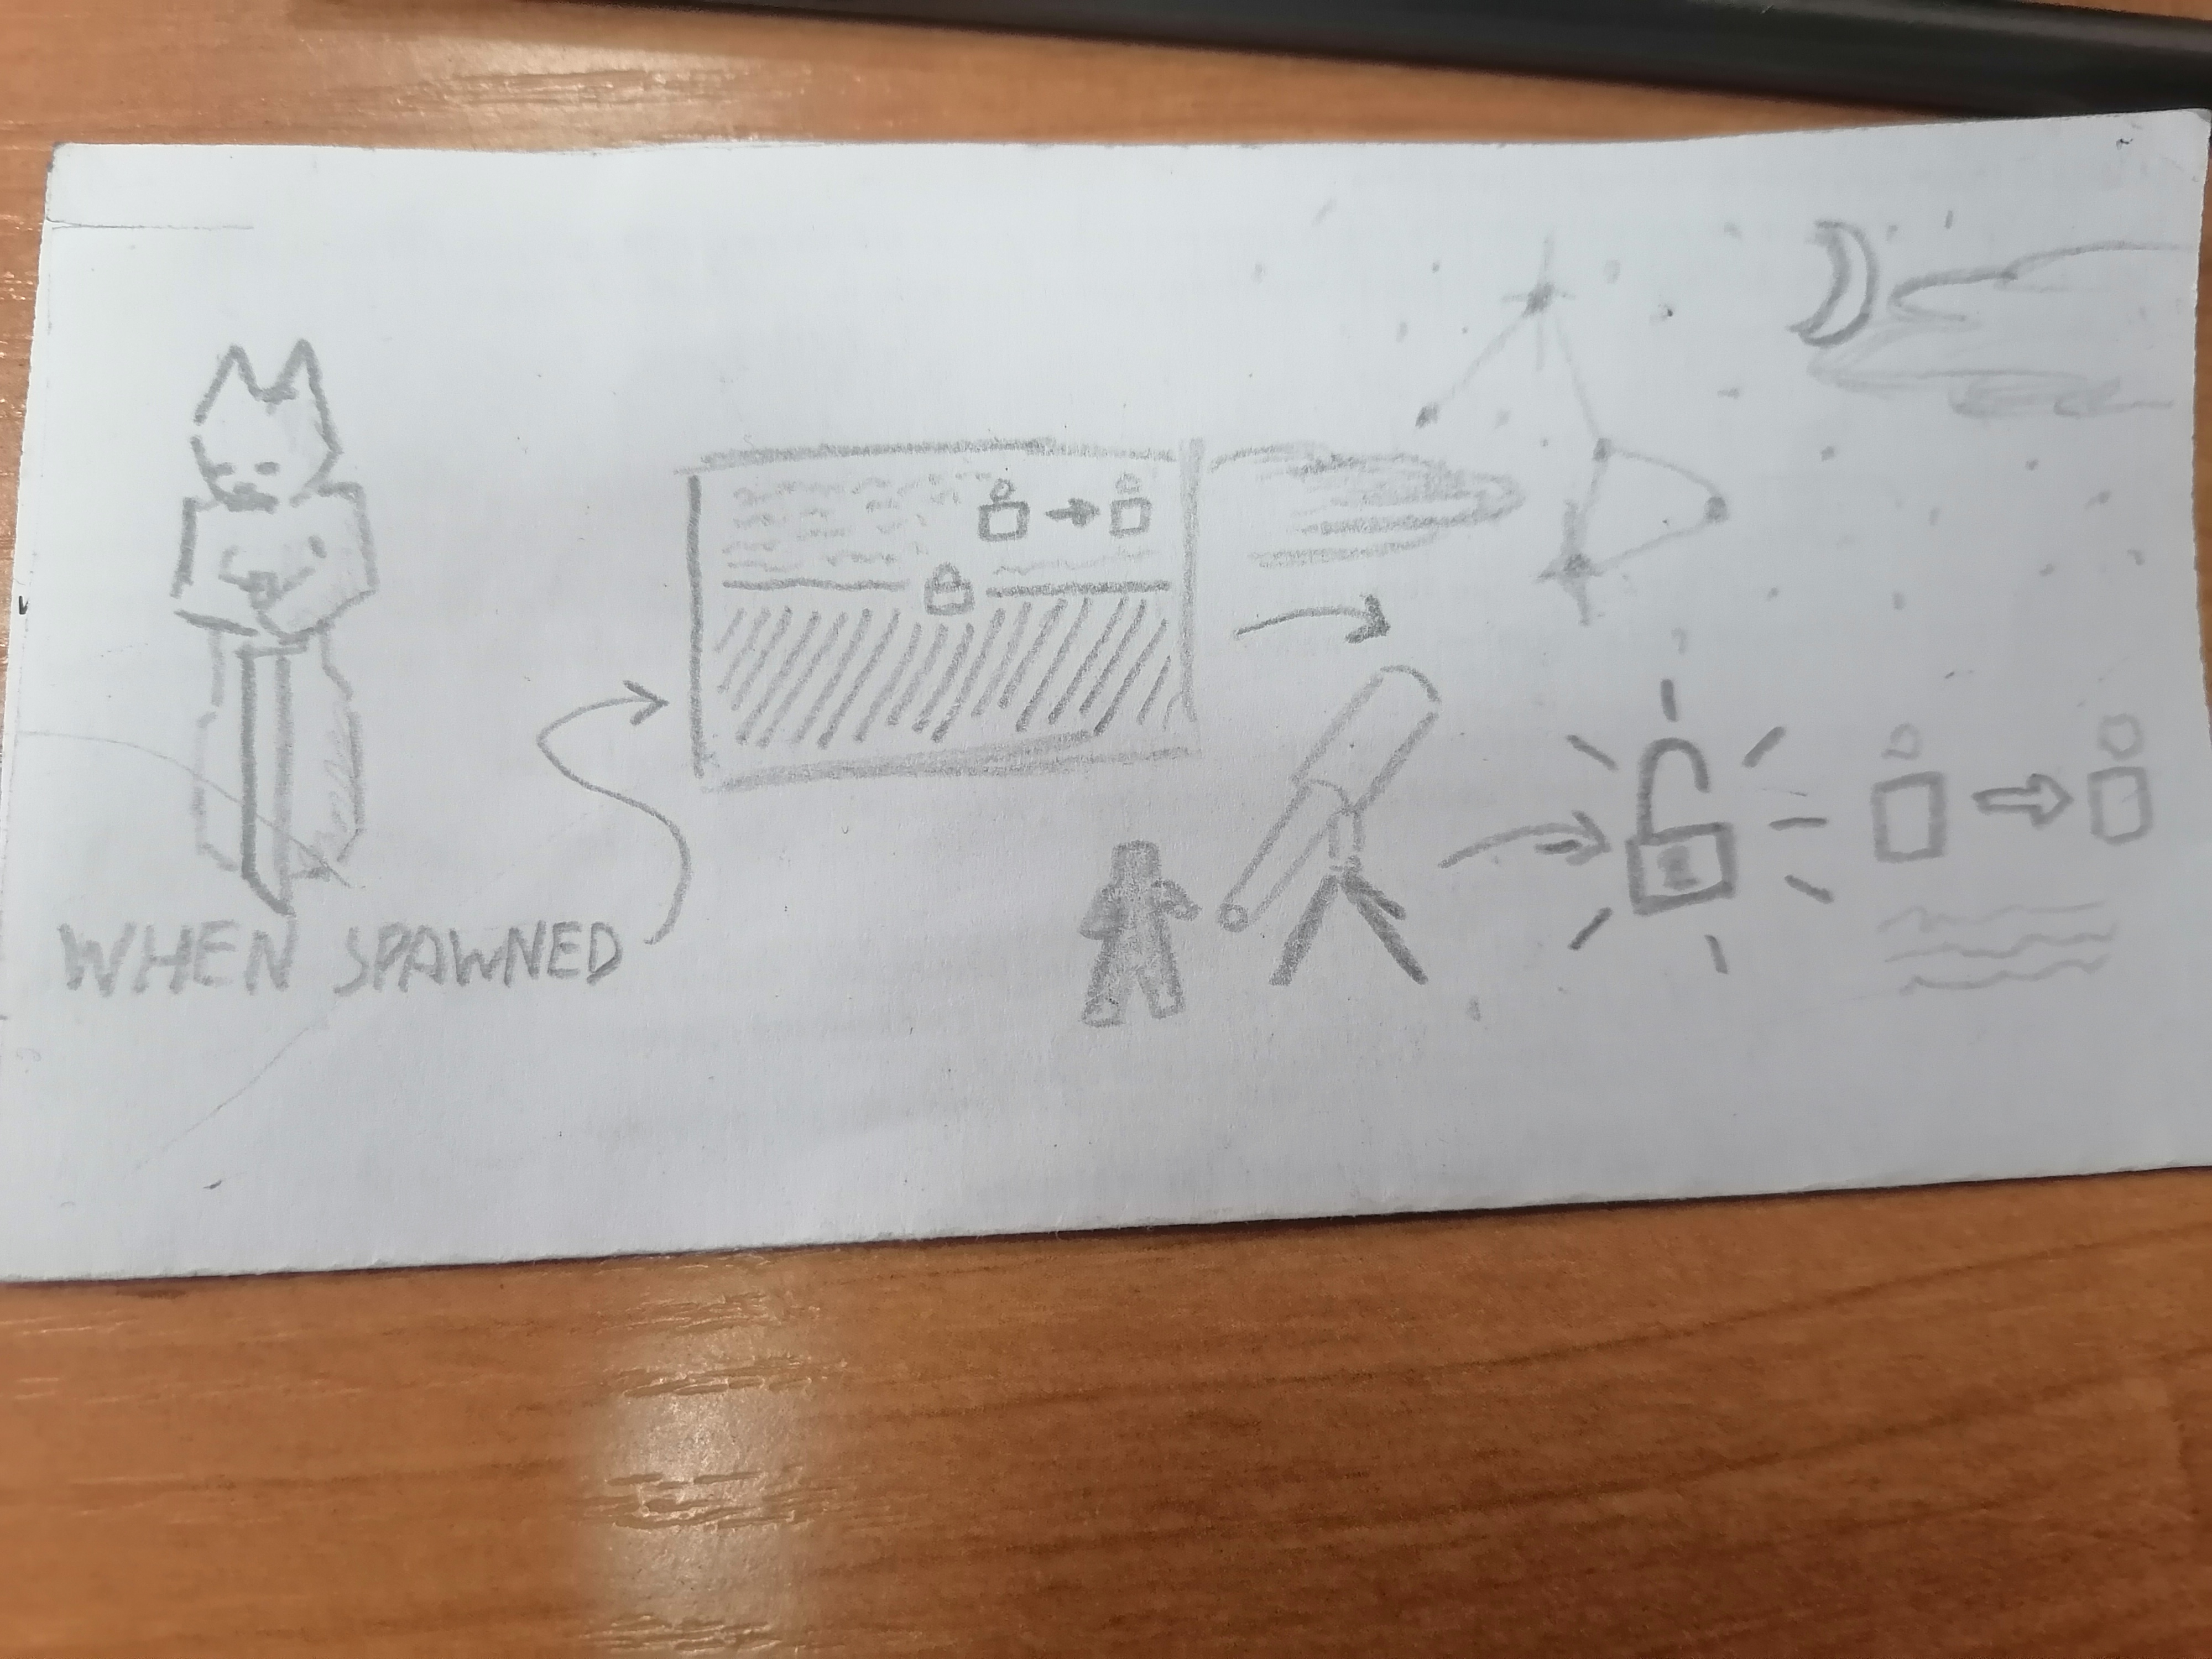 WHEN SPAWNED